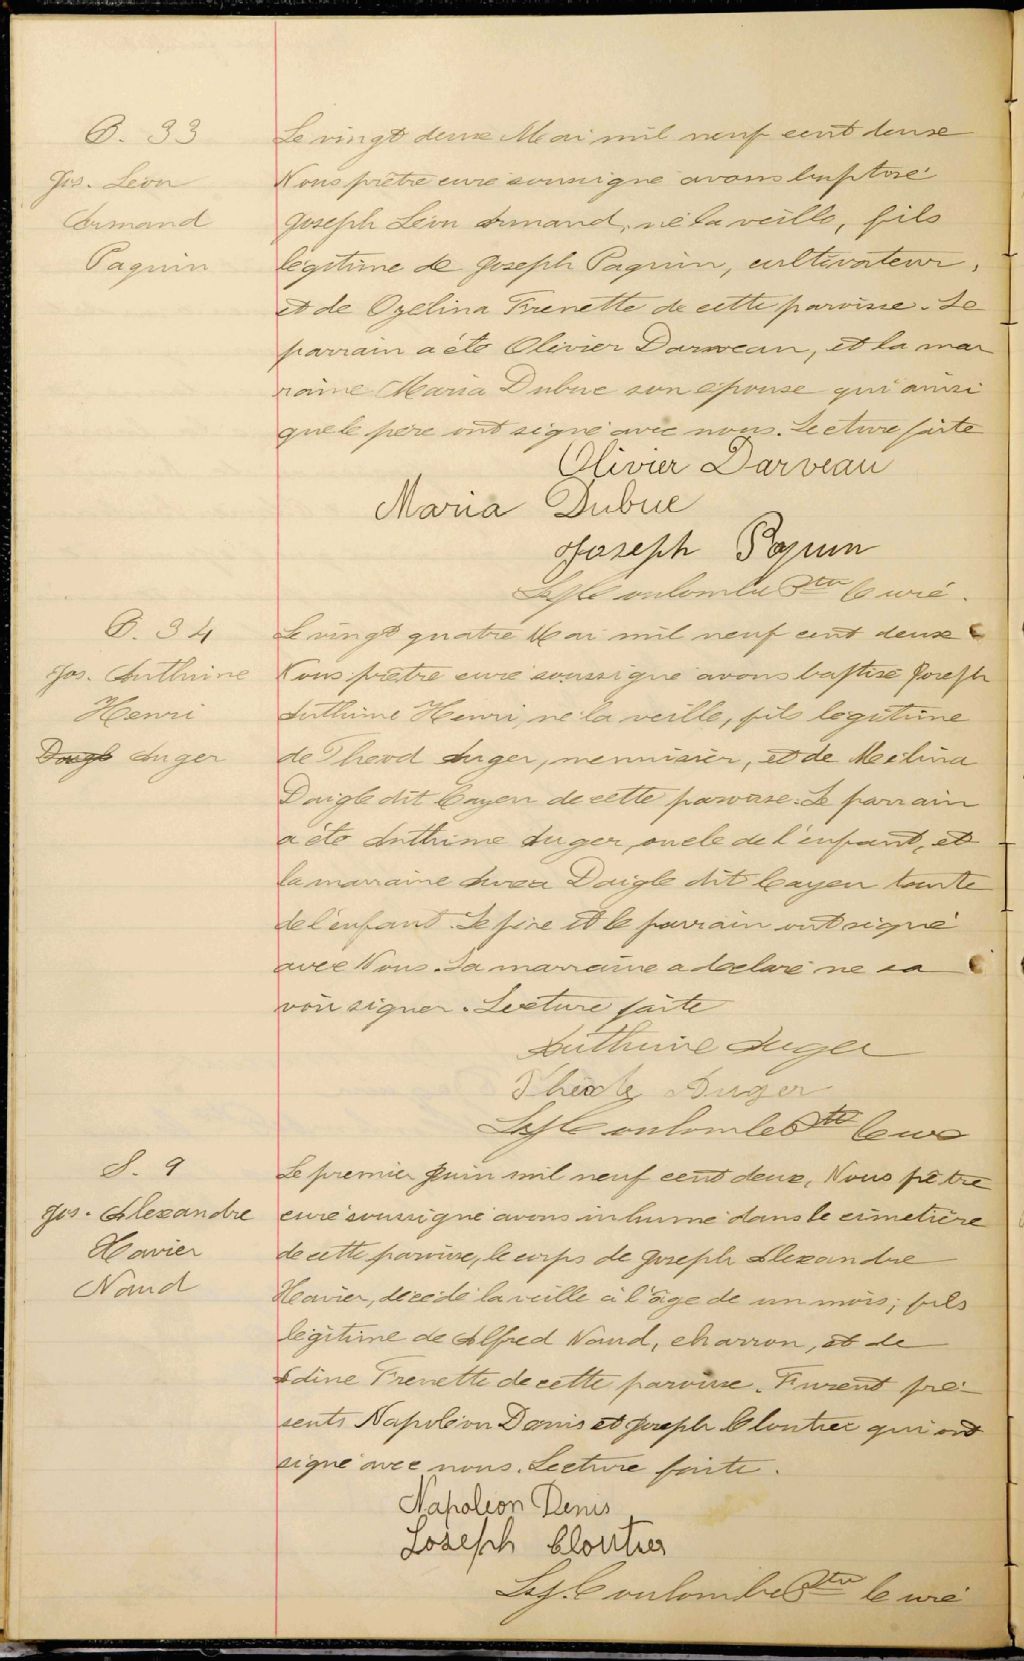 B. 33
Jos. Léon
Armand
Paquin
Le vingt deux Mai mil neuf cent deux
Nous prêtre curé soussigné avons baptisé
Joseph Léon Armand, né la veille, fils
légitime de Joseph Paquin, cultivateur,
et de Ozélina Frenette de cette paroisse. Le
parrain a été Olivier Darveau, et la mar
raine Maria Dubuc son épouse qui ainsi
que le père ont signé avec nous. Lecture faite
Olivier Darveau
Maria Dubuc
Joseph Paquin
Coulombe Ptre Curé.
B. 34
Jos. Anthime
Henri
Daigle Auger
Le vingt quatre Mai mil neuf cent deux
Nous prêtre curé soussigné avons baptisé Joseph
Anthime Henri, né la veille, fils légitime
de Theod Auger, menuisier, et de Mélina
Daigle dit Cayen de cette paroisse. Le parrain
a été Anthime Auger, oncle de l'enfant, et
la marraine Daigle dit Cayen tante
de l'enfant. Le père et le parrain ont signé
avec Nous. La marraine a déclaré ne sa
voir signer. Lecture faite
Anthime Auger
Auger
Coulombe Ptre Curé
S. 9
Jos. Alexandre
Xavier
Naud
Le premier Juin mil neuf cent deux, Nous prêtre
curé soussigné avons inhumé dans le cimetière
de cette paroisse, le corps de Joseph Alexandre
Xavier, décédé la veille à l'âge de un mois; fils
légitime de Alfred Naud, charron, et de
Edine Frenette de cette paroisse. Furent pré-
sents Napoléon Denis et Joseph Cloutier qui ont
signé avec nous. Lecture faite.
Napoleon Denis
Joseph Cloutier
Coulombe Ptre Curé